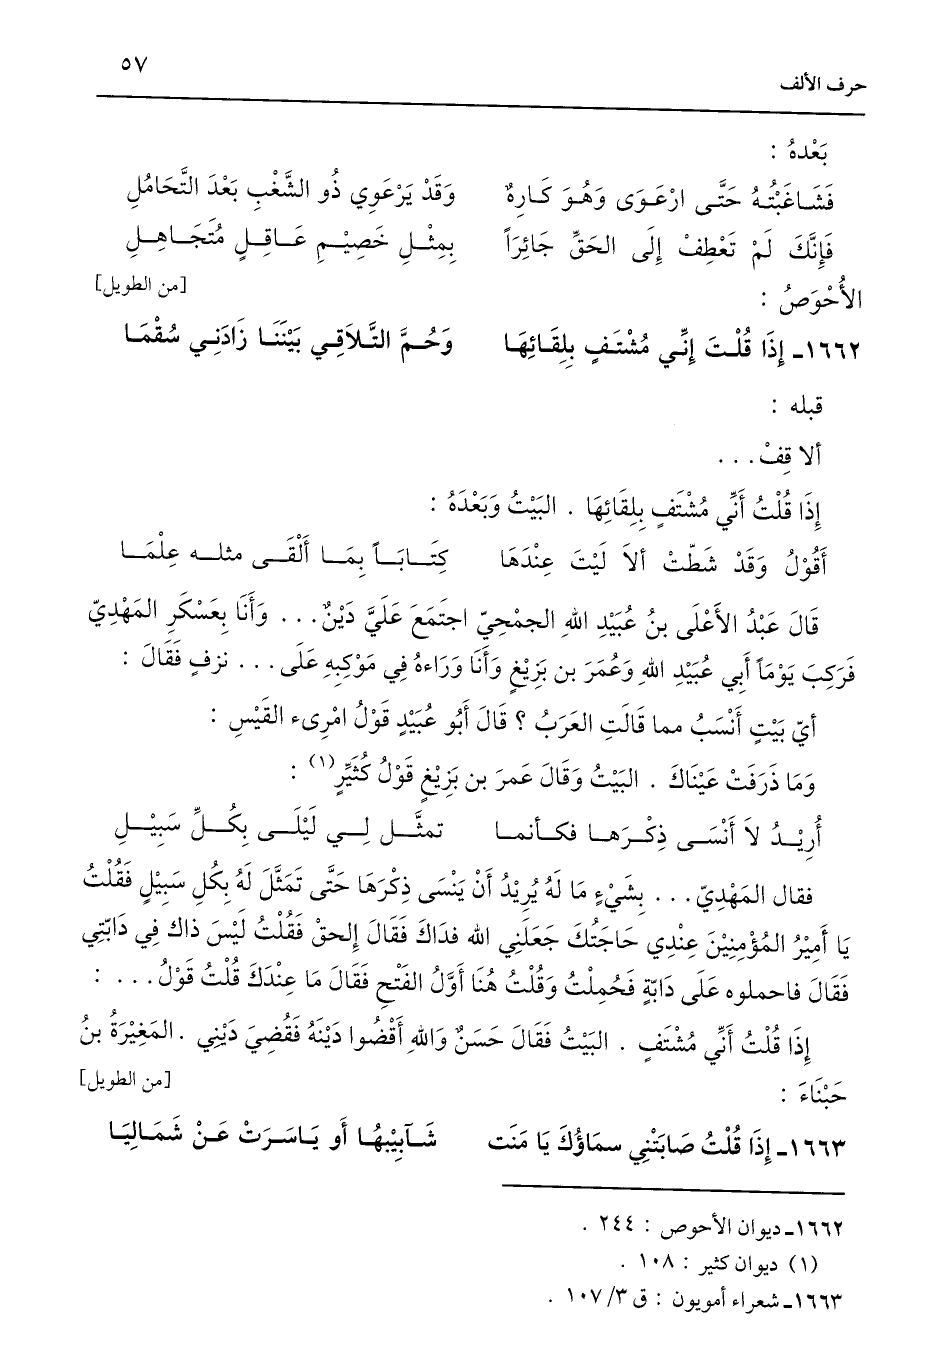 حرف الألف ٥٧
بَعْدهُ :
فَشَاغَبْتُهُ حَتَّى ارْعَوَى وَهُوَ كَارِهٌ وَقَدْ يَرْعَوِي ذُو الشَّغْبِ بَعْدَ التَّحَامُلِ
فَإِنَّكَ لَمْ تَعْطِفْ إِلَى الحَقِّ جَائِرَاً بِمِثْلِ خَصِيْمٍ عَاقِلٍ مُتَجَاهِلِ
الأُحْوَصُ : [من الطويل]
١٦٦٢ـ إِذَا قُلْتَ إِنِّي مُشْتَفٍ بِلِقَائِهَا وَحُمَّ التَّلَاقِي بَيْنَنَا زَادَنِي سُقْمَا
قبله :
ألا قِفْ . . .
إِذَا قُلْتُ أَنِّي مُشْتَفٍ بِلِقَائِهَا . البَيْتُ وَبَعْدَهُ :
أَقُوْلُ وَقَدْ شَطَّتْ ألاَ لَيْتَ عِنْدَهَا كِتَابَاً بِمَا أَلْقَى مثله عِلْمَا
قَالَ عَبْدُ الأَعْلَى بنُ عُبَيْدِ اللهِ الجمحِيّ اجتَمَعَ عَلَيَّ دَيْنٌ . . . وَأَنَا بِعَسْكَرِ المَهْدِيّ
فَرَكِبَ يَوْمَاً أبي عُبَيْدِ اللهِ وَعُمَرَ بن بَزِيْغٍ وَأَنَا وَرَاءهُ فِي مَوْكِبِهِ عَلَى . . . نزفٍ فَقَالَ :
أيّ بَيْتٍ أَنْسَبُ مما قَالَتِ العَرَبُ ؟ قَالَ أبُو عُبَيْدٍ قَوْلُ امْرِىء القَيْسِ :
وَمَا ذَرَفَتْ عَيْنَاكَ . البَيْتُ وَقَالَ عمرَ بن بَزِيْغٍ قَوْلُ كُثَيِّرٍ(١) :
أُرِيْدُ لاَ أَنْسَى ذِكْرَهَا فكأنما تمثَّل لِي لَيْلَى بِكُلِّ سَبِيْلِ
فقال المَهْدِيّ . . . بِشَيْءٍ مَا لَهُ يُرِيْدُ أَنْ يَنْسَى ذِكْرَهَا حَتَّى تَمَثَّلَ لَهُ بِكُلِ سَبِيْلٍ فَقُلْتُ
يَا أَمِيْرُ المُؤْمِنِيْنَ عِنْدِي حَاجَتُكَ جَعَلَنِي الله فدَاكَ فَقَالَ إلحقْ فَقُلْتُ لَيْسَ ذاك فِي دَابَّتِي
فَقَالَ فاحملوه عَلَى دَابةٍ فَحُمِلْتُ وَقُلْتُ هُنَا أوَّلُ الفَتْحِ فَقَالَ مَا عِنْدَكَ قُلْتُ قَوْلُ . . . :
إِذَا قُلْتُ أَنِّي مُشْتَفٍ . البَيْتُ فَقَالَ حَسَنٌ وَاللهِ أَقْضُوا دَيْنَهُ فَقُضِيَ دَيْنِي . المَغِيْرَةُ بنُ
حَبْنَاءَ : [من الطويل]
١٦٦٣ـ إِذَا قُلْتُ صَابَتْنِي سمَاؤُكَ يَا مَنَت شَآبِيْبُهَا أو يَاسَرَتْ عَنْ شَمَالِيَا
١٦٦٢ـ ديوان الأحوص : ٢٤٤ .
(١) ديوان كثير : ١٠٨ .
١٦٦٣ـ شعراء أمويون : ق ٣/ ١٠٧ .